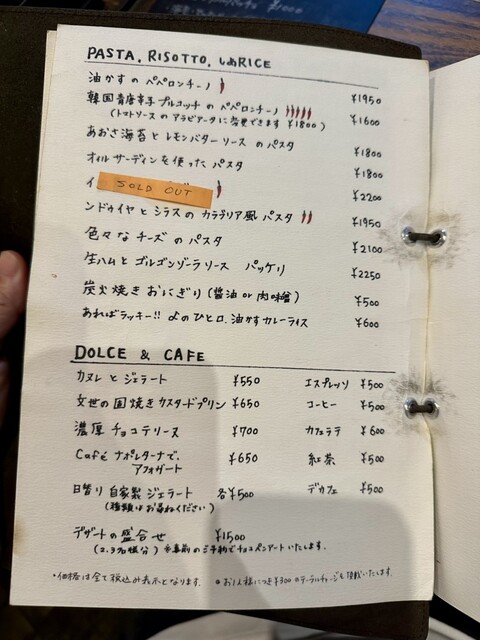 PASTA, RISOTTO, しめRICE
油かすのペペロンチーノ ¥1950
韓国青唐辛子プルコッチのペペロンチーノ ¥1600
(トマトソースのアラビアータに変更できます ¥1800)
あおさ海苔とレモンバターソースのパスタ ¥1800
オイルサーディンを使ったパスタ ¥1800
イ SOLD OUT ¥2200
ンドゥイヤとシラスのカラブリア風パスタ ¥1950
色々なチーズのパスタ ¥2100
生ハムとゴルゴンゾーラソース パッケリ ¥2250
炭火焼きおにぎり(醤油or肉味噌) ¥500
あればラッキー!! 〆のひと口、油かすカレーライス ¥600
DOLCE & CAFE
カヌレとジェラート ¥550 エスプレッソ ¥500
文世の固焼きカスタードプリン ¥650 コーヒー ¥500
濃厚チョコテリーヌ ¥700 カフェラテ ¥600
Café ナポレターナで、 ¥650 紅茶 ¥500
アフォガート
日替り自家製ジェラート 各¥500 デカフェ ¥500
(種類はお尋ねください)
デザートの盛合せ ¥1500
(2.3名様分) ※事前のご予約でチョコペンアートいたします。
・価格は全て税込み表示となります。 ・お1人様につき¥300のテーブルチャージを頂戴いたします。